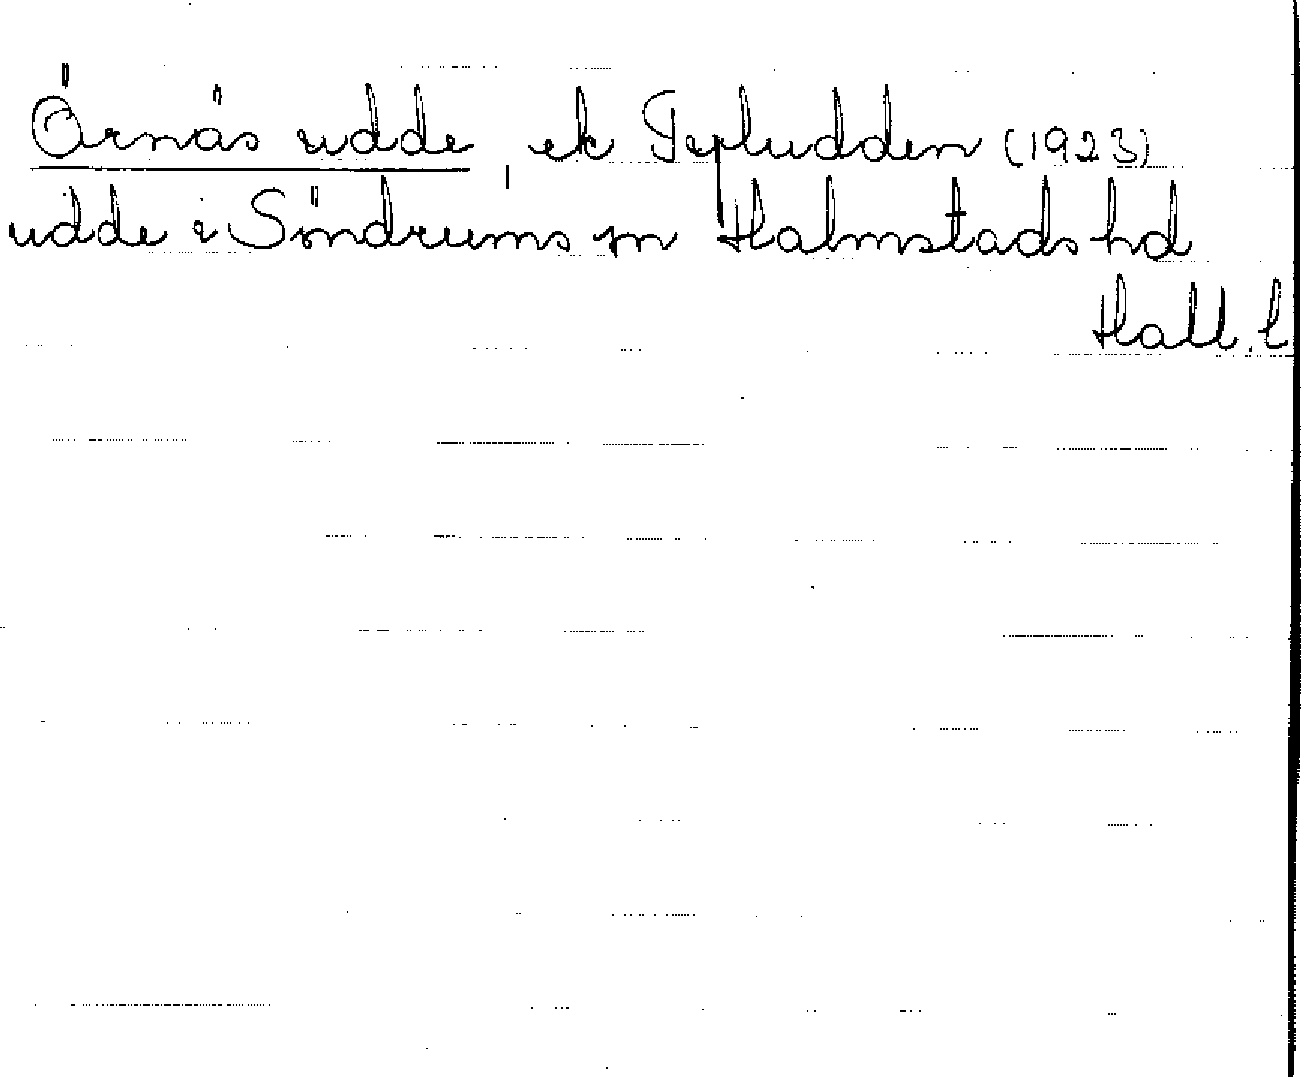 Örnäs udde, ek Tepludden (1923)
udde i Söndrums sn Halmstads hd
Hall. l